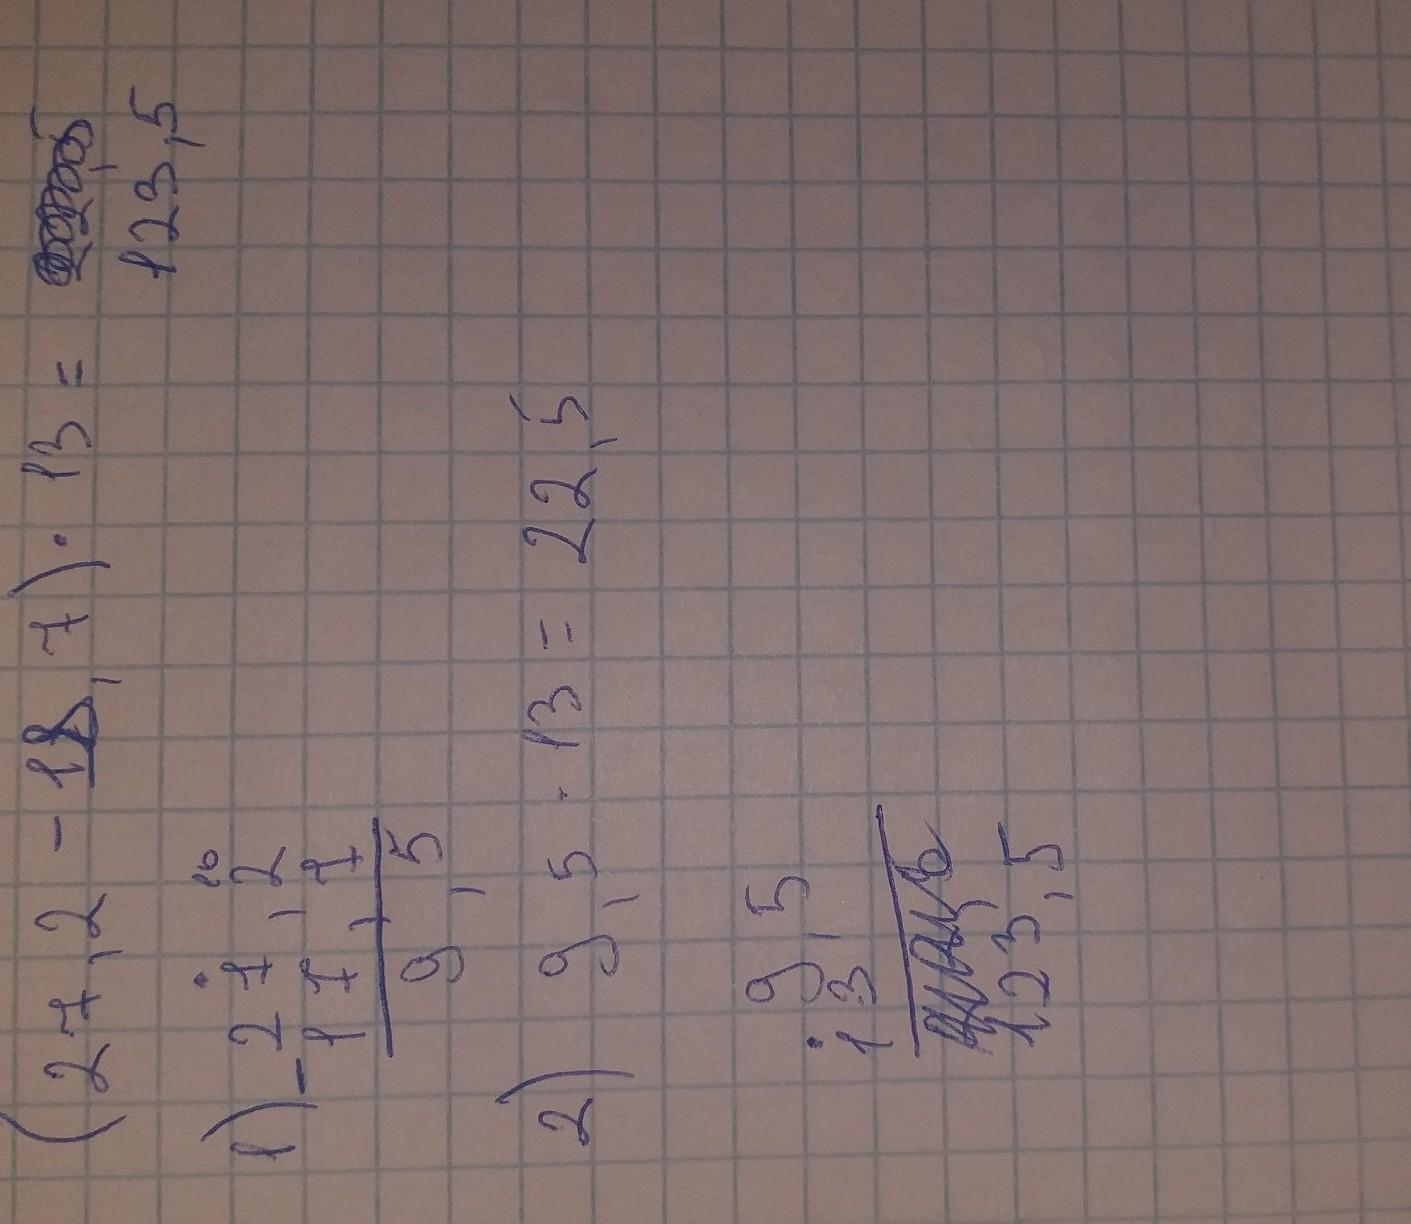 (27,2 - 18,7) · 13 =
123,5
10
1) - 27,2
17,7
9,5
2) 9,5 · 13 = 22,5
9,5
· 13
123,5